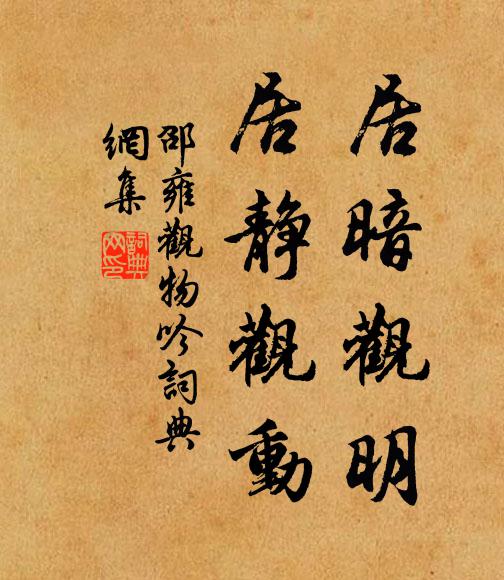 居暗觀明
居静觀動
邵雍觀物吟詞典
網集
詞典
网印